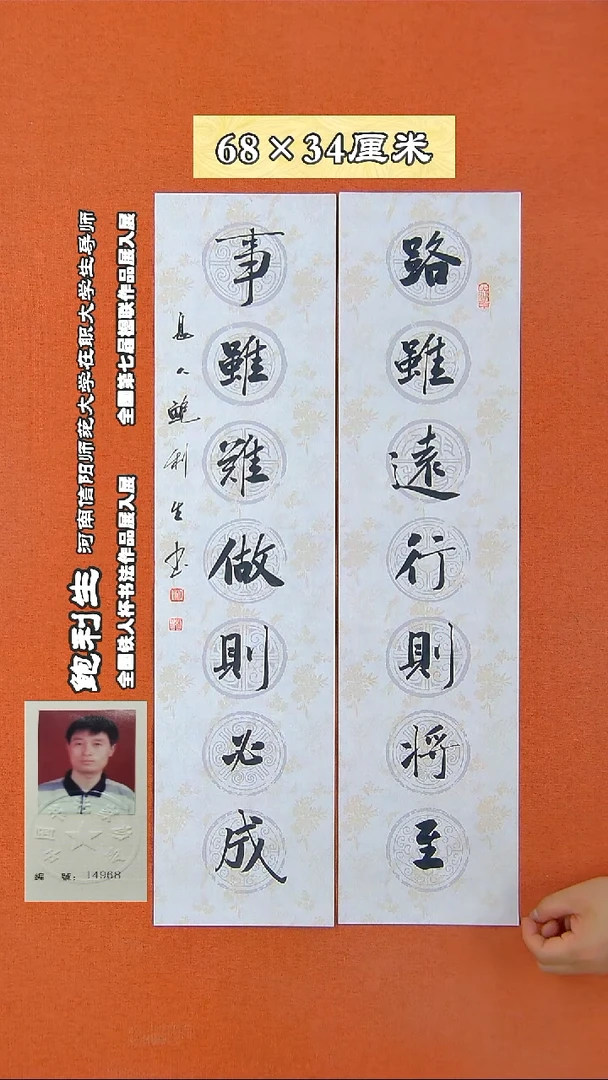 68×34厘米
路雖遠行則將至
事雖難做則必成
息人鲍利生书
鲍利生 河南信阳师范大学在职大学生导师
全國铁人杯书法作品展入展 全國第七届楹联作品展入展
編 號：14968